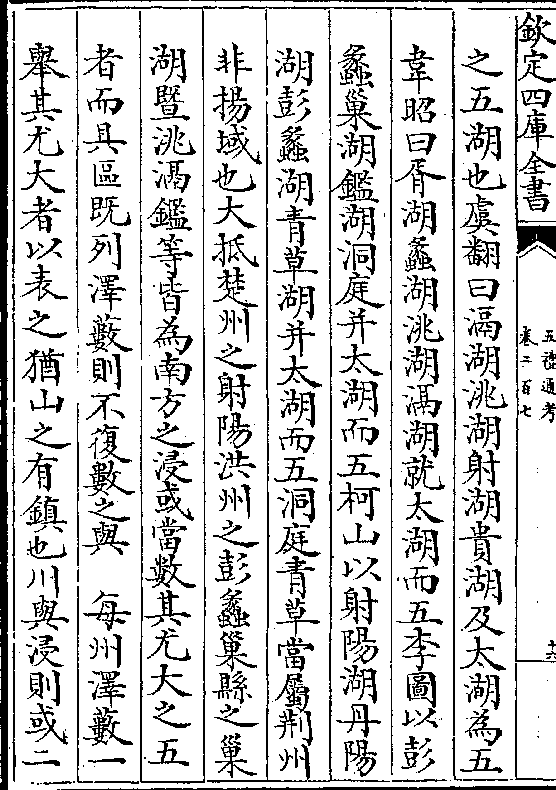 欽定四庫全書
五禮通考
卷二百七
之五湖也虞翻曰滆湖洮湖射湖貴湖及太湖為五
韋昭曰胥湖蠡湖洮湖滆湖就太湖而五李圖以彭
蠡巢湖鑑湖洞庭并太湖而五柯山以射陽湖丹陽
湖彭蠡湖青草湖并太湖而五洞庭青草當屬荆州
非揚域也大抵楚州之射陽洪州之彭蠡巢縣之巢
湖暨洮滆鑑等皆為南方之浸或當數其尤大之五
者而具區既列澤藪則不復數之與　每州澤藪一
舉其尤大者以表之猶山之有鎮也川與浸則或二